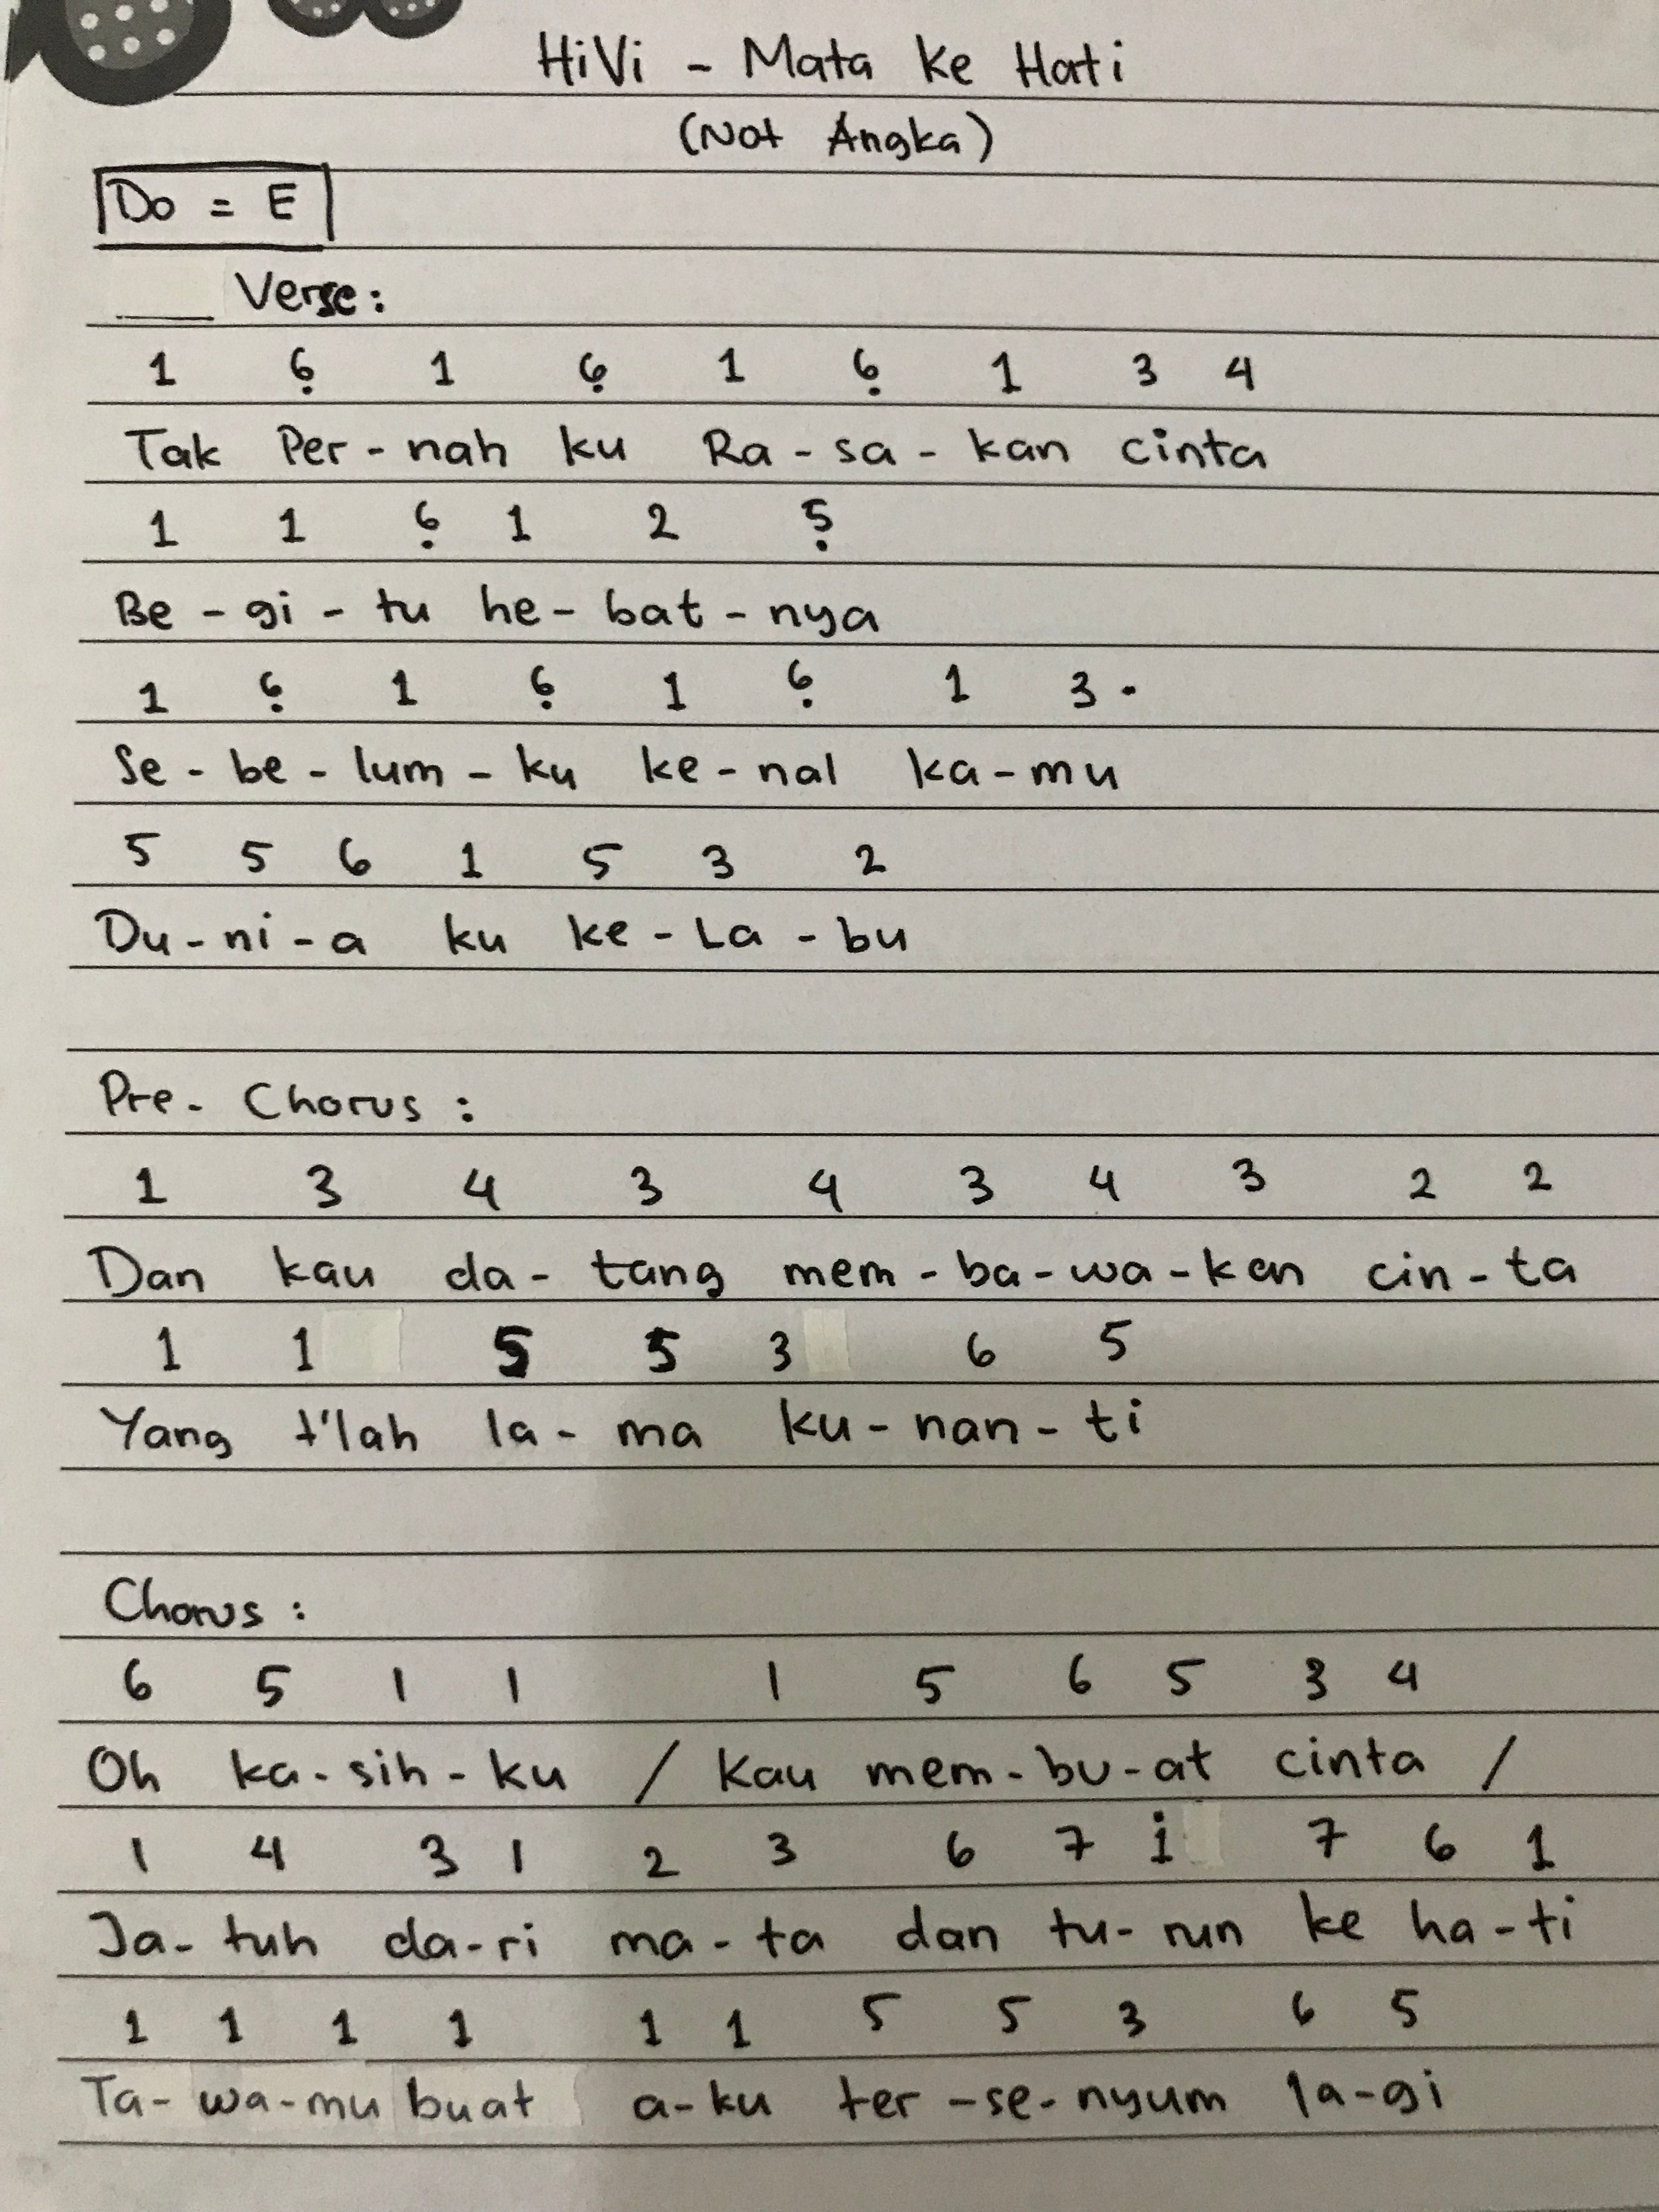 HiVi - Mata ke Hati
(Not Angka)
Do = E
Verse:
1 6̣ 1 6̣ 1 6̣ 1 3 4
Tak Per-nah ku Ra-sa-kan cinta
1 1 6̣ 1 2 5̣
Be-gi-tu he-bat-nya
1 6̣ 1 6̣ 1 6̣ 1 3 .
Se-be-lum-ku ke-nal ka-mu
5 5 6 1 5 3 2
Du-ni-a ku ke-La-bu
Pre-Chorus:
1 3 4 3 4 3 4 3 2 2
Dan kau da-tang mem-ba-wa-kan cin-ta
1 1 5 5 3 6 5
Yang t'lah la-ma ku-nan-ti
Chorus:
6 5 1 1 1 5 6 5 3 4
Oh ka-sih-ku / kau mem-bu-at cinta /
1 4 3 1 2 3 6 7 1̇ 7 6 1
Ja-tuh da-ri ma-ta dan tu-run ke ha-ti
1 1 1 1 1 1 5 5 3 6 5
Ta-wa-mu buat a-ku ter-se-nyum la-gi